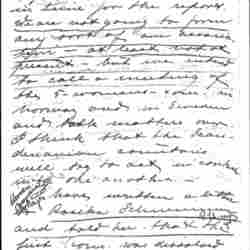 in time for the report.
We are not going to form
any sort of an associa-
tion — at least not at
present — but we intend
to call a meeting of
the 5 women - some in
Norway and in Sweden
and talk matters over.
I think that the Scan-
dinavian countries
will try to act in
one another. —
have written a letter
to Rosika Schwimmer
and told her that the
first was dissolved